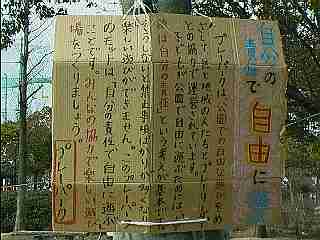 自分の
責任で自由に遊ぶ
プレーパークは、公園での自由な遊びのため
に、区と地域の人たちとプレーリー
との協力で運営されています。
子どもが公園で自由に遊ぶためには、
は自分の責任という考えが基本
うしないと禁止事項ばかり
楽しい遊びができません。このプレーパー
クのモットーは、「自分の責任で自由に遊ぶ」
ことです。みんなの協力で楽しい遊び
場をつくりましょう。
プレーパーク